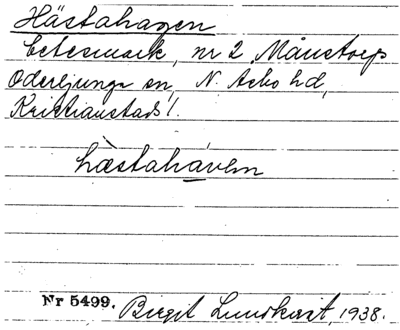 Hästahagen
betesmark, nr 2 Månstorp
Oderljunga sn, N. Åsbo hd,
Kristianstads l.
hæ̀stahávεn
Nr 5499. Birgit Lundkvist, 1938.